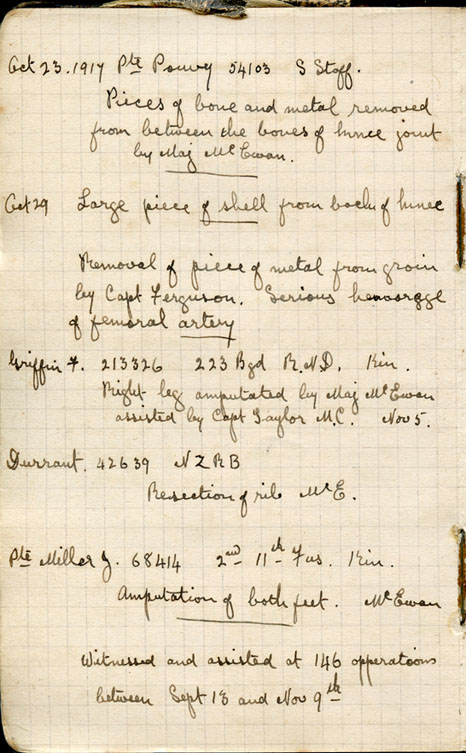 Oct 23. 1917 Pte Pouvy 54103 S Staff.
Pieces of bone and metal removed
from between the bones of knee joint
by Maj McEwan.
Oct 29 Large piece of shell from back of knee
Removal of piece of metal from groin
by Capt Ferguson. Serious hemorrage
of femoral artery
Griffin F. 213326 223 Bgd R.N.D.
Right leg amputated by Maj McEwan
assisted by Capt Taylor M.C. Nov 5.
Durrant. 42639 N Z R B
Resection of rib McE.
Pte Miller J. 68414 2nd 11th Fus.
Amputation of both feet. McEwan
Witnessed and assisted at 146 opperations
between Sept 13 and Nov 9th